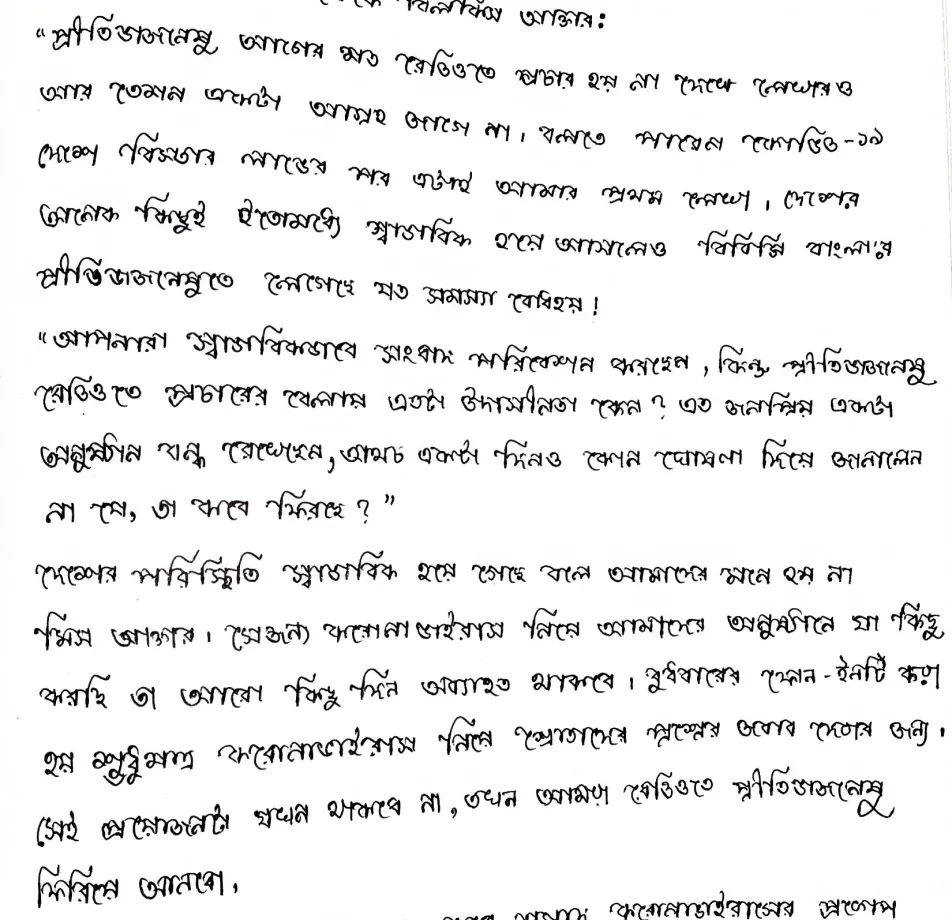 থেকে বিলকিস আক্তার:
“প্রীতিভাজনেষু আগের মত রেডিওতে প্রচার হয় না দেখে লেখারও
আর তেমন একটা আগ্রহ জাগে না। বলতে পারেন কোভিড-১৯
দেশে বিস্তার লাভের পর এটাই আমার প্রথম লেখা। দেশের
অনেক কিছুই ইতোমধ্যে স্বাভাবিক হয়ে আসলেও বিবিসি বাংলা'র
প্রীতিভাজনেষুতে লেগেছে যত সমস্যা বোধহয়!
“আপনারা স্বাভাবিকভাবে সংবাদ পরিবেশন করছেন, কিন্তু প্রীতিভাজনেষু
রেডিওতে প্রচারের বেলায় এতটা উদাসীনতা কেন? এত জনপ্রিয় একটা
অনুষ্ঠান বন্ধ রেখেছেন, অথচ একটা দিনও কোন ঘোষণা দিয়ে জানালেন
না যে, তা কবে ফিরছে?”
দেশের পরিস্থিতি স্বাভাবিক হয়ে গেছে বলে আমাদের মনে হয় না
মিস আক্তার। সেজন্য করোনাভাইরাস নিয়ে আমাদের অনুষ্ঠানে যা কিছু
করছি তা আরো কিছু দিন অব্যাহত থাকবে। বুধবারের ফোন-ইনটি করা
হয় শুধুমাত্র করোনাভাইরাস নিয়ে শ্রোতাদের প্রশ্নের জবাব দেবার জন্য।
সেই প্রয়োজনটা যখন থাকবে না, তখন আমরা রেডিওতে প্রীতিভাজনেষু
ফিরিয়ে আনবো।
করোনাভাইরাসের প্রকোপ